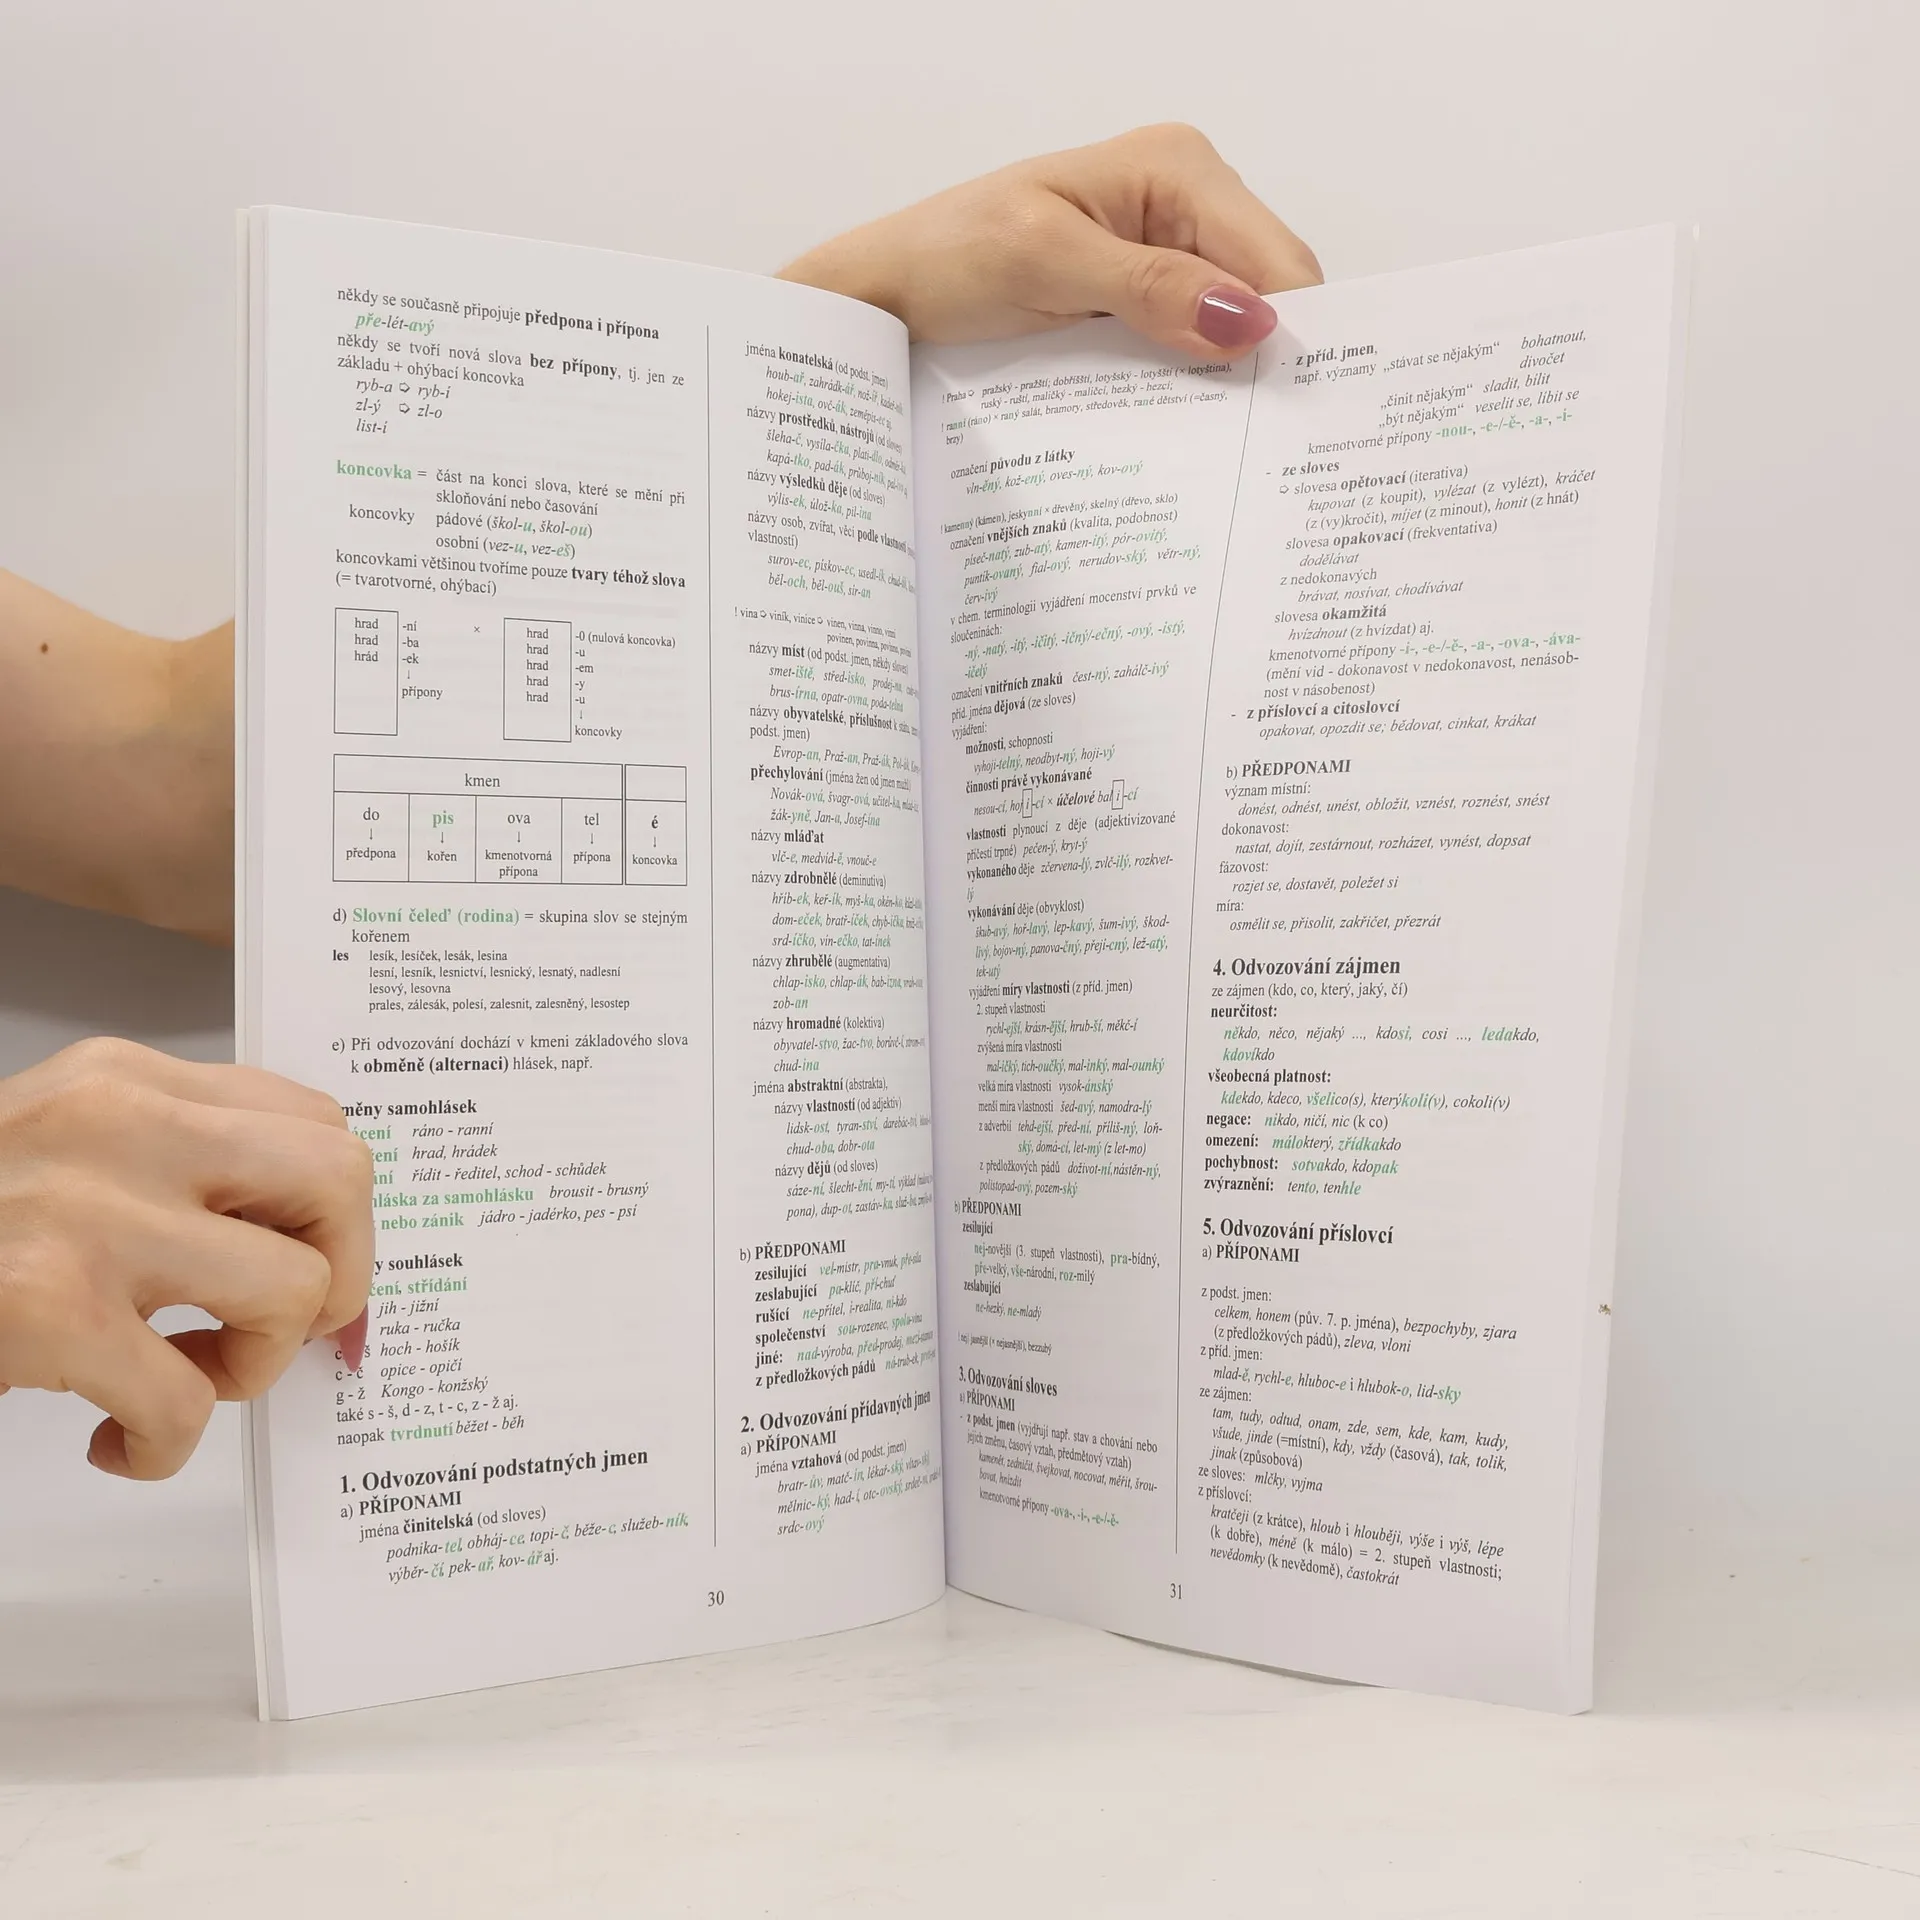 někdy se současně připojuje předpona i přípona
pře-lét-avý
někdy se tvoří nová slova bez přípony, tj. jen ze
základu + ohýbací koncovka
ryb-a ➪ ryb-í
zl-ý ➪ zl-o
list-í
koncovka = část na konci slova, které se mění při
skloňování nebo časování
koncovky pádové (škol-u, škol-ou)
osobní (vez-u, vez-eš)
koncovkami většinou tvoříme pouze tvary téhož slova
(= tvarotvorné, ohýbací)
hrad -ní × hrad -0 (nulová koncovka)
hrad -ba hrad -u
hrád -ek hrad -em
↓ hrad -y
přípony hrad -u
↓
koncovky
kmen
do pis ova tel é
↓ ↓ ↓ ↓ ↓
předpona kořen kmenotvorná přípona koncovka
přípona
d) Slovní čeleď (rodina) = skupina slov se stejným
kořenem
les lesík, lesíček, lesák, lesina
lesní, lesník, lesnictví, lesnický, lesnatý, nadlesní
lesový, lesovna
prales, zálesák, polesí, zalesnit, zalesněný, lesostep
e) Při odvozování dochází v kmeni základového slova
k obměně (alternaci) hlásek, např.
měny samohlásek
ráno - ranní
hrad, hrádek
řídit - ředitel, schod - schůdek
hláska za samohlásku brousit - brusný
nebo zánik jádro - jadérko, pes - psi
souhlásek
střídání
jih - jižní
ruka - ručka
hoch - hošík
c - č opice - opičí
g - ž Kongo - konžský
také s - š, d - z, t - c, z - ž aj.
naopak tvrdnutí běžet - běh
1. Odvozování podstatných jmen
a) PŘÍPONAMI
jména činitelská (od sloves)
podnika-tel, obháj-ce, topi-č, běže-c, služeb-ník,
výběr-čí, pek-ař, kov-ář aj.
30
jména konatelská (od podst. jmen)
houb-ař, zahrádk-ář, nož-íř,
hokej-ista, ovč-ák, zeměpis-ec aj.
názvy prostředků, nástrojů (od sloves)
šleha-č, vysíla-čka, plati-dlo,
kapá-tko, pad-ák, průboj-ník,
názvy výsledků děje (od sloves)
výlis-ek, úlož-ka, pil-ina
názvy osob, zvířat, věcí podle vlastností
vlastností)
surov-ec, pískov-ec, usedl-ík,
běl-och, běl-ouš, sir-an
! vina ➪ viník, vinice ➪ vinen, vinna, vinno, vinni
povinen, povinna, povinno,
názvy míst (od podst. jmen, někdy sloves)
smet-iště, střed-isko, prodej-na,
brus-írna, opatr-ovna, poda-telna
názvy obyvatelské, příslušnost k
podst. jmen)
Evrop-an, Praž-an, Praž-ák, Pol-ák,
přechylování (jména žen od jmen mužů)
Novák-ová, švagr-ová, učitel-ka,
žák-yně, Jan-a, Josef-ína
názvy mláďat
vlč-e, medvíd-ě, vnouč-e
názvy zdrobnělé (deminutiva)
hříb-ek, keř-ík, myš-ka, okén-ko,
dom-eček, bratř-íček, chyb-ička,
srd-íčko, vin-ečko, tat-ínek
názvy zhrubělé (augmentativa)
chlap-isko, chlap-ák, bab-izna,
zob-an
názvy hromadné (kolektiva)
obyvatel-stvo, žac-tvo, borův-í,
chud-ina
jména abstraktní (abstrakta),
názvy vlastností (od adjektiv)
lidsk-ost, tyran-ství, darebác-tví,
chud-oba, dobr-ota
názvy dějů (od sloves)
sáze-ní, šlecht-ění, my-tí, výklad
pona), dup-ot, zastáv-ka, služ-ba,
b) PŘEDPONAMI
zesilující vel-mistr, pra-vnuk, pře-síla
zeslabující pa-klíč, pří-chuť
rušící ne-přítel, i-realita, ni-kdo
společenství sou-rozenec, spolu-vina
jiné: nad-výroba, před-prodej,
z předložkových pádů ná-trub-ek,
2. Odvozování přídavných jmen
a) PŘÍPONAMI
jména vztahová (od podst. jmen)
bratr-ův, matč-in, lékař-ský,
mělnic-ký, had-í, otc-ovský,
srdc-ový
! Praha ➪ pražský - pražští; dobříšští, lotyšský - lotyšští (× lotyština),
ruský - ruští, maličký - maličcí, hezký - hezcí;
! ranní (ráno) × raný salát, brambory, středověk, rané dětství (=časný,
brzy)
označení původu z látky
vln-ěný, kož-ený, oves-ný, kov-ový
! kamenný (kámen), jeskynní × dřevěný, skelný (dřevo, sklo)
označení vnějších znaků (kvalita, podobnost)
píseč-natý, zub-atý, kamen-itý, pór-ovitý,
puntík-ovaný, fial-ový, nerudov-ský, větr-ný,
červ-ivý
v chem. terminologii vyjádření mocenství prvků ve
sloučeninách:
-ný, -natý, -itý, -ičitý, -ičný/-ečný, -ový, -istý,
-ičelý
označení vnitřních znaků čest-ný, zahálč-ivý
příd. jména dějová (ze sloves)
vyjádření:
možnosti, schopnosti
vyhoji-telný, neodbyt-ný, hoji-vý
činnosti právě vykonávané
nesou-cí, hoj i -cí × účelové bal i -cí
vlastnosti plynoucí z děje (adjektivizované
příčestí trpné) pečen-ý, kryt-ý
vykonaného děje zčervena-lý, zvlč-ilý, rozkvet-
lý
vykonávání děje (obvyklost)
škub-avý, hoř-lavý, lep-kavý, šum-ivý, škod-
livý, bojov-ný, panova-čný, přejí-cný, lež-atý,
tek-utý
vyjádření míry vlastnosti (z příd. jmen)
2. stupeň vlastnosti
rychl-ejší, krásn-ější, hrub-ší, měkč-í
zvýšená míra vlastnosti
mal-ičký, tich-oučký, mal-inký, mal-ounký
velká míra vlastnosti vysok-ánský
menší míra vlastnosti šed-avý, namodra-lý
z adverbií tehd-ejší, před-ní, příliš-ný, loň-
ský, domá-cí, let-mý (z let-mo)
z předložkových pádů doživot-ní, nástěn-ný,
polistopad-ový, pozem-ský
b) PŘEDPONAMI
zesilující
nej-novější (3. stupeň vlastnosti), pra-bídný,
pře-velký, vše-národní, roz-milý
zeslabující
ne-hezký, ne-mladý
! nej jasnější (× nejasnější), bezzubý
3. Odvozování sloves
a) PŘÍPONAMI
- z podst. jmen (vyjdřují např. stav a chování nebo
jejich změnu, časový vztah, předmětový vztah)
kamenět, zedničit, švejkovat, nocovat, měřit, šrou-
bovat, hnízdit
kmenotvorné přípony -ova-, -i-, -e-/-ě-
31
- z příd. jmen,
např. významy „stávat se nějakým“ bohatnout,
divočet
„činit nějakým“ sladit, bílit
„být nějakým“ veselit se, líbit se
kmenotvorné přípony -nou-, -e-/-ě-, -a-, -i-
- ze sloves
➪ slovesa opětovací (iterativa)
kupovat (z koupit), vylézat (z vylézt), kráčet
(z (vy)kročit), míjet (z minout), honit (z hnát)
slovesa opakovací (frekventativa)
dodělávat
z nedokonavých
brávat, nosívat, chodívávat
slovesa okamžitá
hvízdnout (z hvízdat) aj.
kmenotvorné přípony -i-, -e-/-ě-, -a-, -ova-, -áva-
(mění vid - dokonavost v nedokonavost, nenásob-
nost v násobenost)
- z příslovcí a citoslovcí
opakovat, opozdit se; bědovat, cinkat, krákat
b) PŘEDPONAMI
význam místní:
donést, odnést, unést, obložit, vznést, roznést, snést
dokonavost:
nastat, dojít, zestárnout, rozházet, vynést, dopsat
fázovost:
rozjet se, dostavět, poležet si
míra:
osmělit se, přisolit, zakřičet, přezrát
4. Odvozování zájmen
ze zájmen (kdo, co, který, jaký, čí)
neurčitost:
někdo, něco, nějaký ..., kdosi, cosi ..., ledakdo,
kdovíkdo
všeobecná platnost:
kdekdo, kdeco, všelico(s), kterýkoli(v), cokoli(v)
negace: nikdo, ničí, nic (k co)
omezení: málokterý, zřídkakdo
pochybnost: sotvakdo, kdopak
zvýraznění: tento, tenhle
5. Odvozování příslovcí
a) PŘÍPONAMI
z podst. jmen:
celkem, honem (pův. 7. p. jména), bezpochyby, zjara
(z předložkových pádů), zleva, vloni
z příd. jmen:
mlad-ě, rychl-e, hluboc-e i hlubok-o, lid-sky
ze zájmen:
tam, tudy, odtud, onam, zde, sem, kde, kam, kudy,
všude, jinde (=místní), kdy, vždy (časová), tak, tolik,
jinak (způsobová)
ze sloves: mlčky, vyjma
z příslovcí:
kratčeji (z krátce), hloub i hlouběji, výše i výš, lépe
(k dobře), méně (k málo) = 2. stupeň vlastnosti;
nevědomky (k nevědomě), častokrát